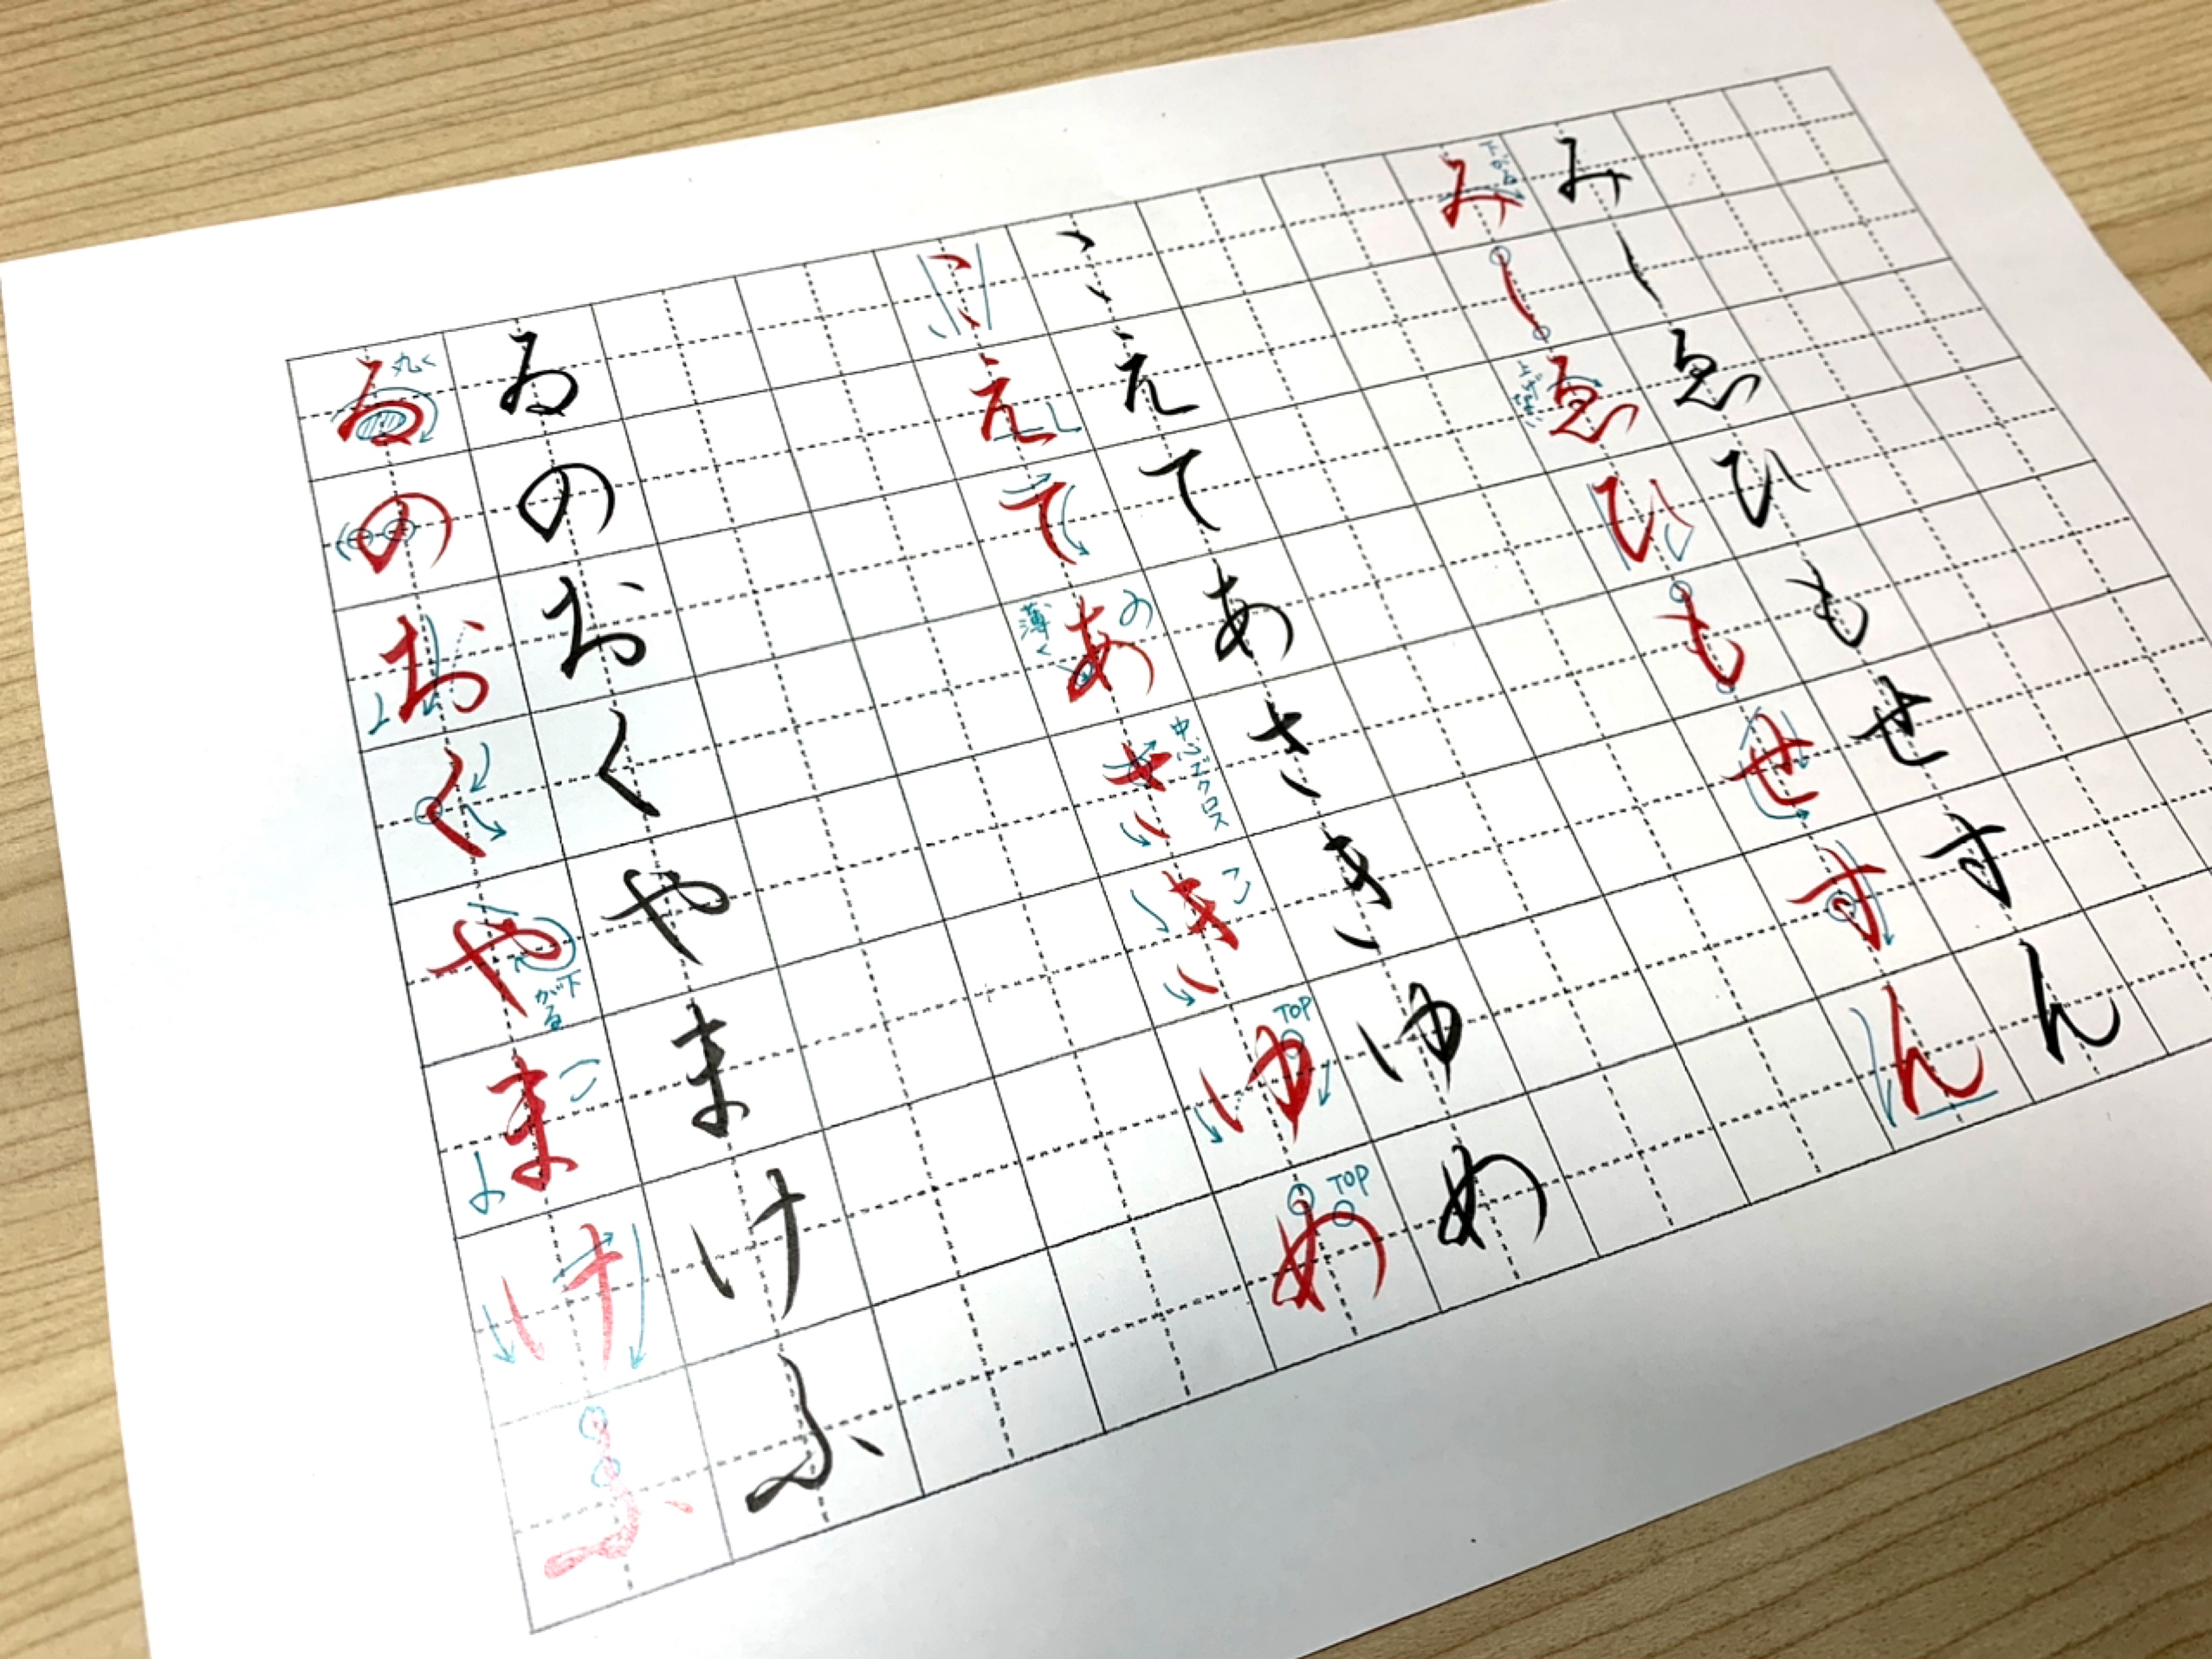 みしゑひもせすん
みしゑひもせすん
こえてあさきゆめ
の
薄く
こ
TOP
TOP
こえてあさきゆめ
ゐのおくやまけふ
丸く
下がる
こ
ゐのおくやまけふ